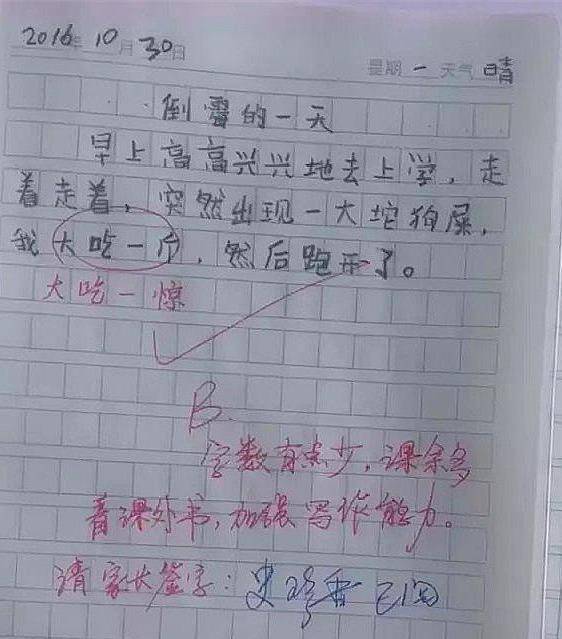 2016年10月30日
星期一 天气 晴
倒霉的一天
早上高高兴兴地去上学，走
着走着，突然出现一大坨狗屎，
我大吃一斤，然后跑开了。
大吃一惊
B
字数有点少，课余多
看课外书，加强写作能力。
请家长签字：史 香 已阅